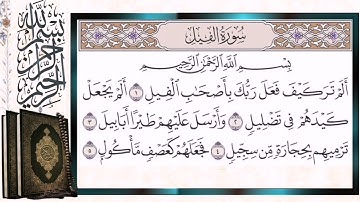 بسم الله الرحمن الرحيم
سُورَةُ الفِيلِ
بِسْمِ اللَّهِ الرَّحْمَٰنِ الرَّحِيمِ
أَلَمْ تَرَ كَيْفَ فَعَلَ رَبُّكَ بِأَصْحَٰبِ الْفِيلِ ١ أَلَمْ يَجْعَلْ
كَيْدَهُمْ فِي تَضْلِيلٍ ٢ وَأَرْسَلَ عَلَيْهِمْ طَيْرًا أَبَابِيلَ ٣
تَرْمِيهِم بِحِجَارَةٍ مِّن سِجِّيلٍ ٤ فَجَعَلَهُمْ كَعَصْفٍ مَّأْكُولٍ ٥